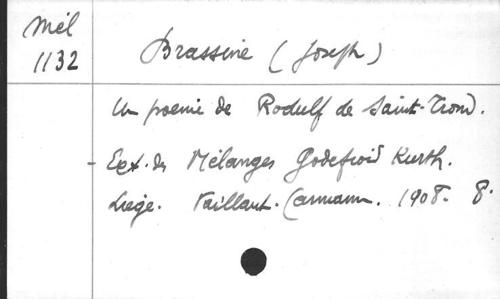 Mél
1132
Brassine (Joseph)
Un poème de Rodulf de Saint-Trond.
- Ext. des Mélanges Godefroid Kurth.
Liège. Vaillant-Carmann. 1908. 8°